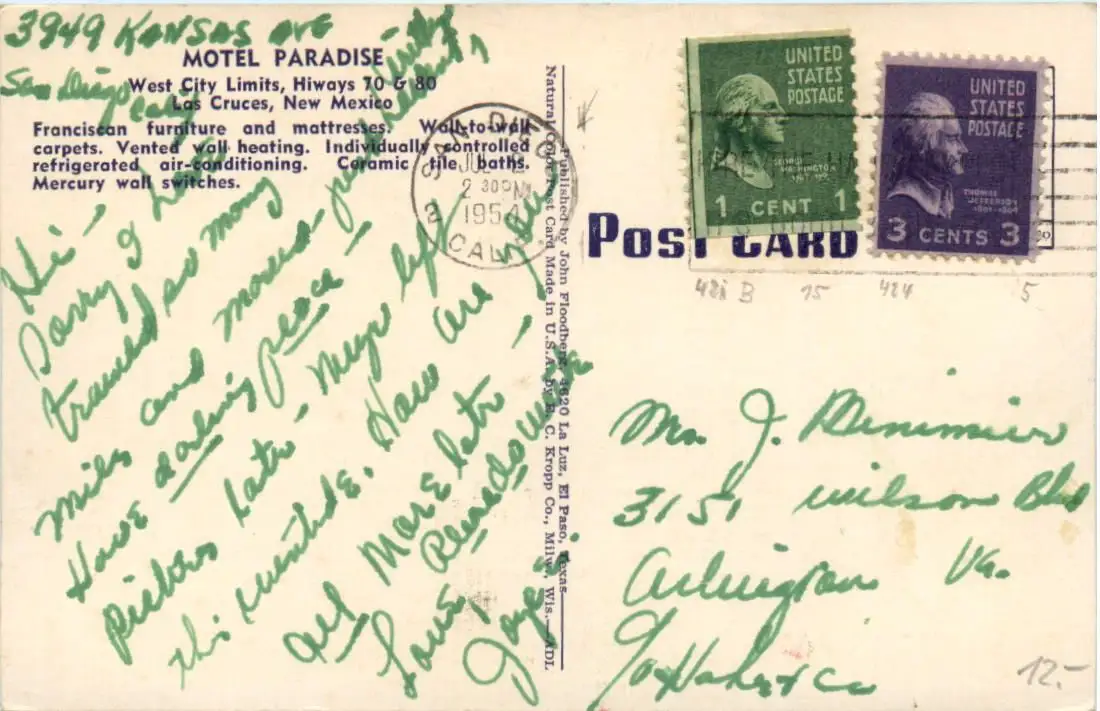 3949 KANSAS AVE
San Diego
Calif
MOTEL PARADISE
West City Limits, Hiways 70 & 80
Las Cruces, New Mexico
Franciscan furniture and mattresses. Wall-to-wall
carpets. Vented wall heating. Individually controlled
refrigerated air-conditioning. Ceramic tile baths.
Mercury wall switches.
Hi -
Sorry I have
traveled so many
miles and moved -
Have darling place
Pictures later.
this
How are you
all More later
Love,
Joyce
SAN DIEGO
JUL
2 30 PM
1954
CALIF.
Published by John Floodberg, 4620 La Luz, El Paso, Texas
Natural Color Post Card Made in U.S.A. by E. C. Kropp Co., Milw., Wis.—ADL
POST CARD
UNITED
STATES
POSTAGE
GEORGE
WASHINGTON
1 CENT 1
UNITED
STATES
POSTAGE
THOMAS
JEFFERSON
1801-1809
3 CENTS 3
B 15 424 5
J.
3151 Wilson Blvd
Arlington Va.
12.-